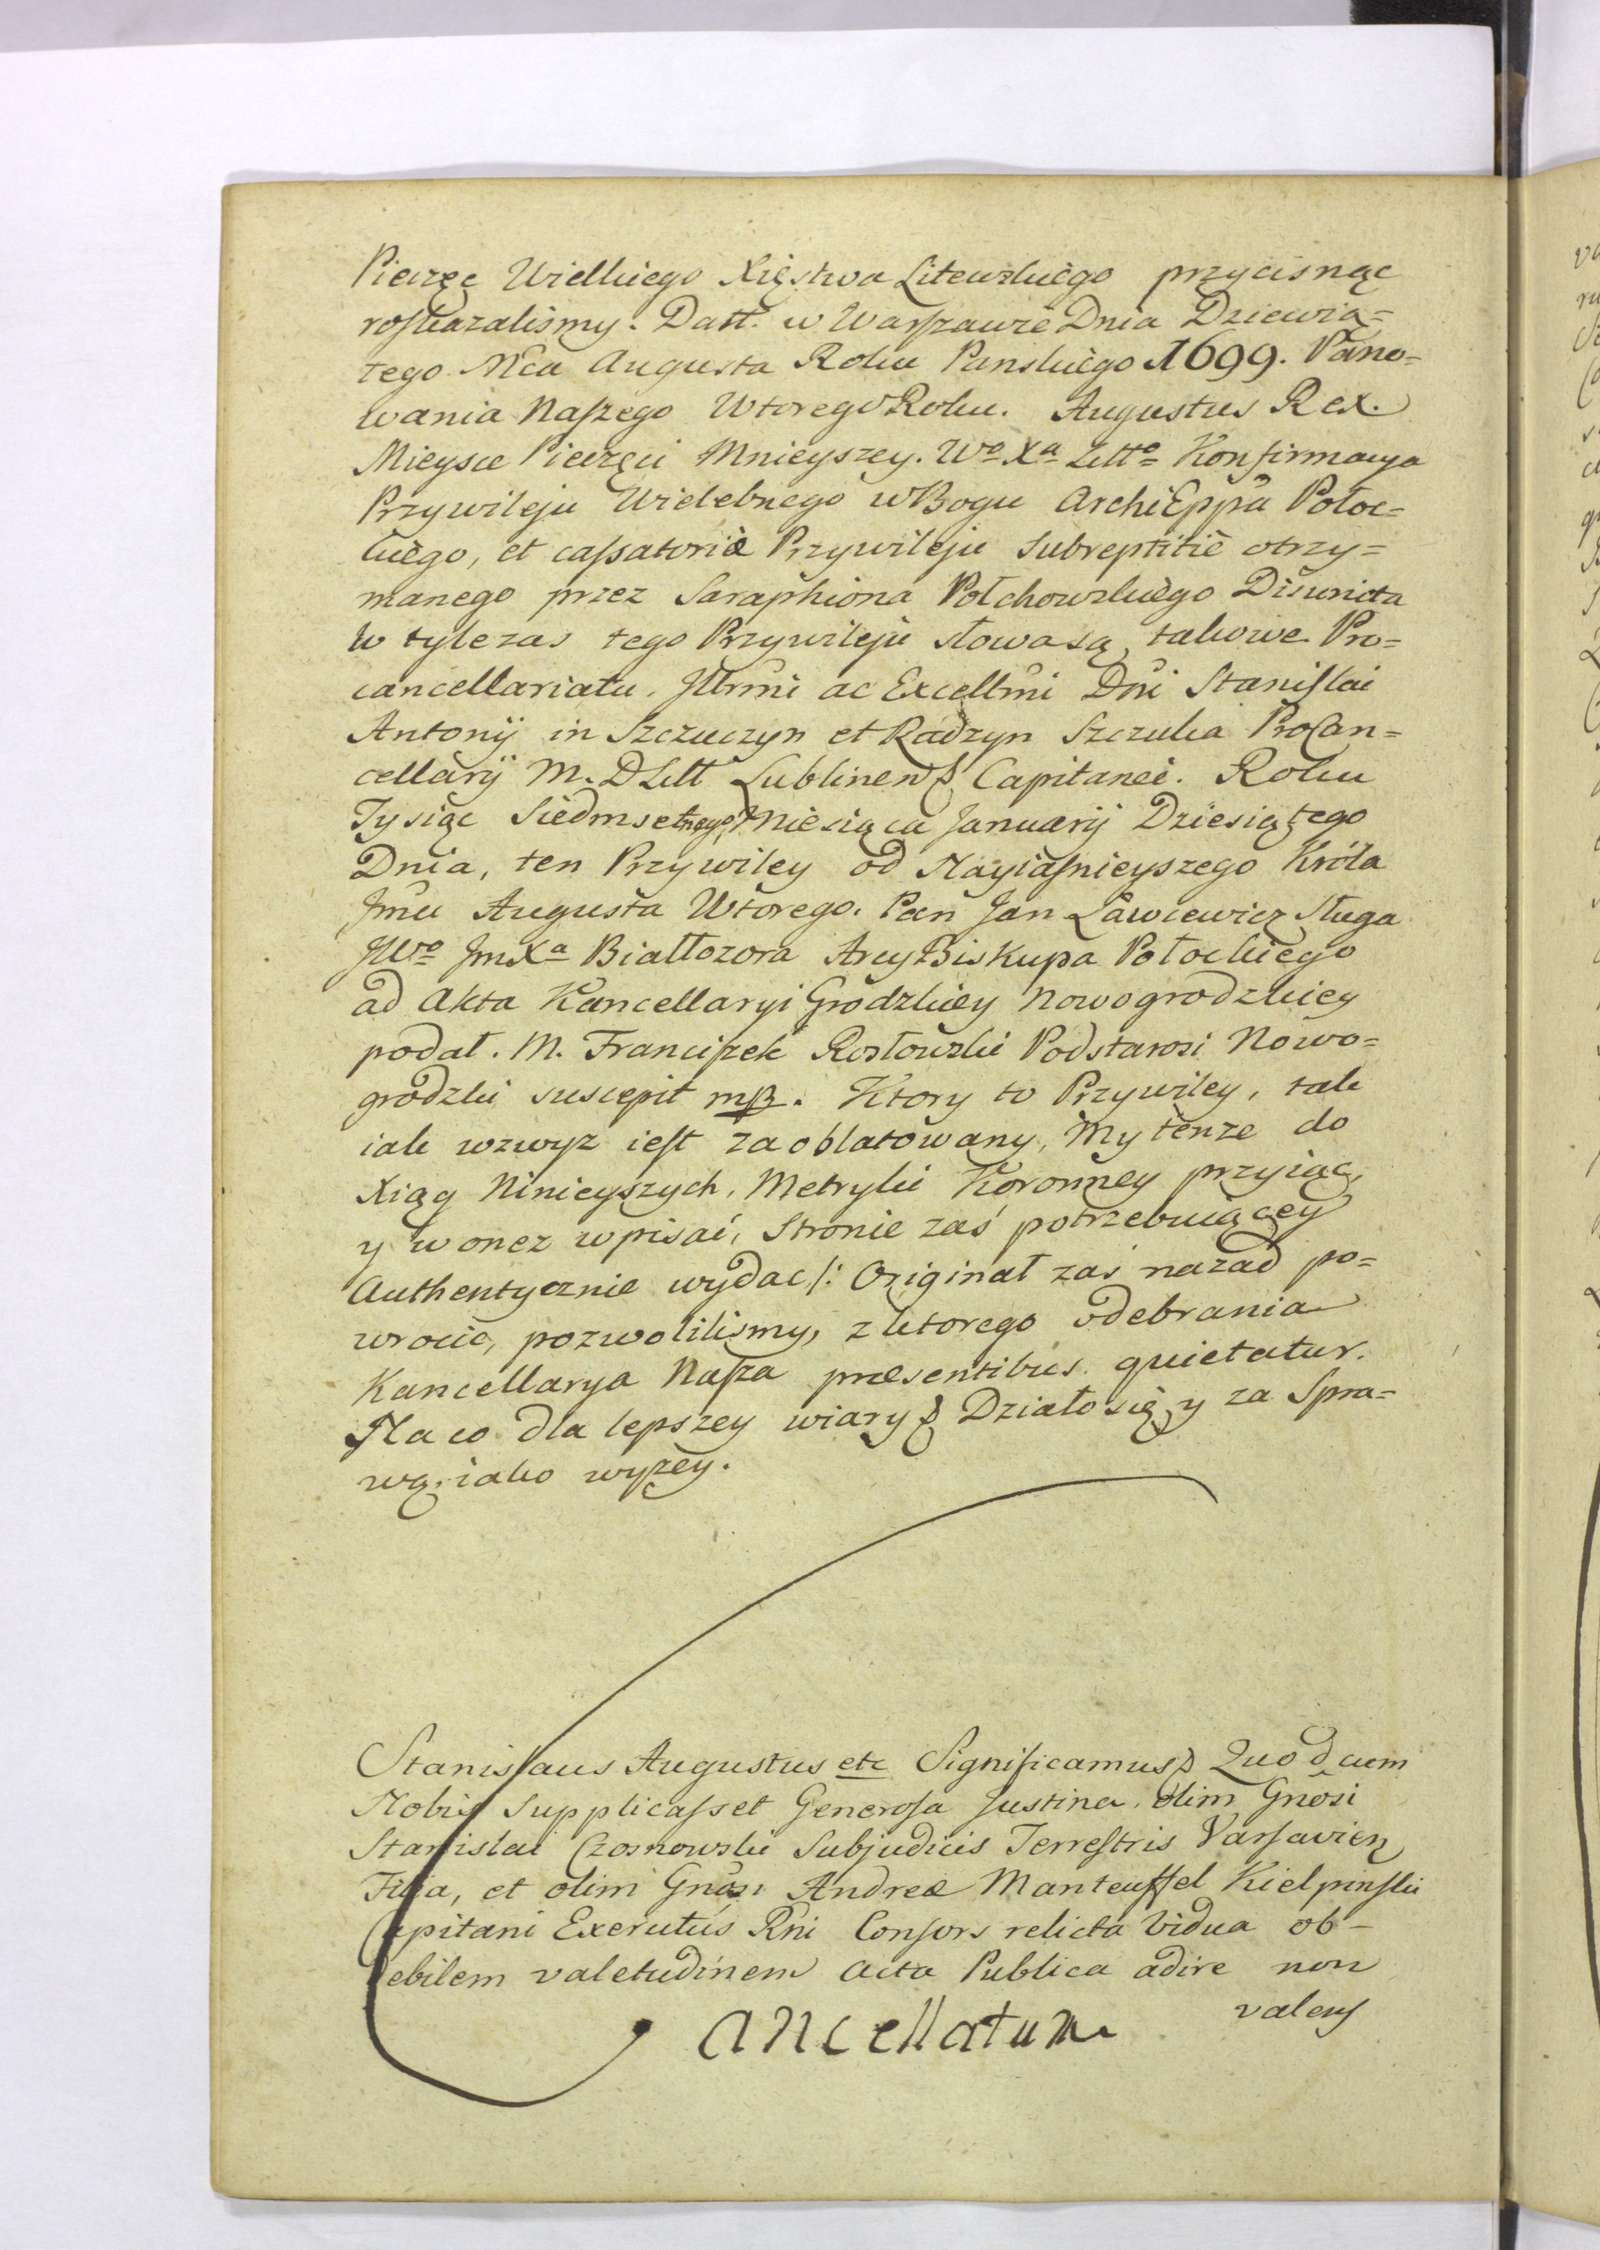 Pieczęc Wielkiego Xięstwa Litewskiego przycisnąc
roskazalismy. Datt. w Warszawie Dnia Dziewią=
tego Mca Augusta Roku Panskiego 1699. Pano=
wania Naszego Wtorego Roku. Augustus Rex.
Mieysce Pieczęci Mnieyszey. Wo Xa Litto Konfirmacya
Przywileju Wielebnego w Bogu ArchiEppa Połoc=
kiego, et cassatoriæ Przywileju Subreptitie otrzy=
manego przez Saraphiona Połchowskiego Disunita
w tylczas tego Przywileju słowa są takowe Pro=
cancellariatu. Jllrmi ac Excellmi Dni Stanislai
Antonij in Szczuczyn et Radzyn Szczuka ProCan=
cellarij M. D Litt Lublinens Capitanei. Roku
Tysiąc Siedmsetnego, Miesiąca Januarij Dziesiątego
Dnia, ten Przywiley od Nayiasnieyszego Króla
Jmci Augusta Wtorego. Pan Jan Ławcewicz Sługa
JWo JmXa Białłozora ArcyBiskupa Połockiego
ad Akta Kancellaryi Grodzkiey Nowogrodzkiey
podał. M. Franciszek Rosłowski Podstarosi Nowo=
grodzki suscepit mp. Ktory to Przywiley, tak
iak wzwyz iest zaoblatowany, My tenze do
Xiąg Ninieyszych, Metryki Koronney przyiąc,
y w onez wpisać, Stronie zaś potrzebuiącey
Authentycznie wydac /: Originał zaś nazad po=
wrocic, pozwolilismy, z ktorego odebrania
Kancellarya Nasza præsentibus quietatur.
Na co dla lepszey wiary & Działo się y za Spra=
wą, iako wyzey.
Stanislaus Augustus etc Significamus & Quod cum
Nobis Supplicasset Generosa Justina olim Gnosi
Stanislai Czosnowski Subjudicis Terrestris Varsavien
Filia, et olim Gnosi Andreæ Manteuffel Kielpinski
Capitani Exercitus Rni Consors relicta Vidua ob
debilem valetudinem Acta Publica adire non
valens
Cancellatum